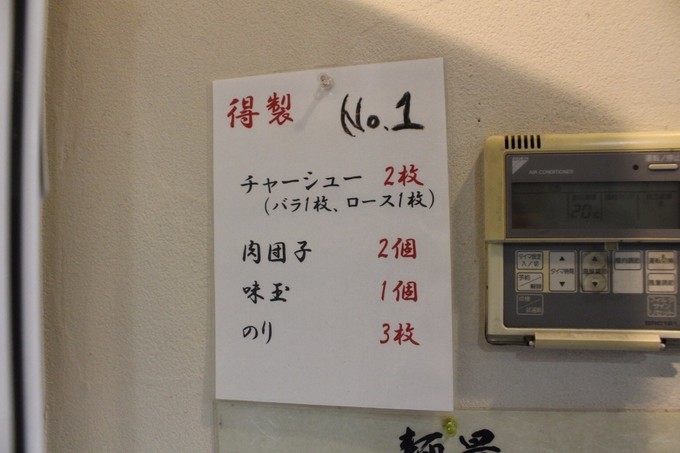 得製 No.1
チャーシュー 2枚
(バラ1枚、ロース1枚)
肉団子 2個
味玉 1個
のり 3枚
麺量
AIR CONDITIONER
運転/停止
20℃
タイマ時間